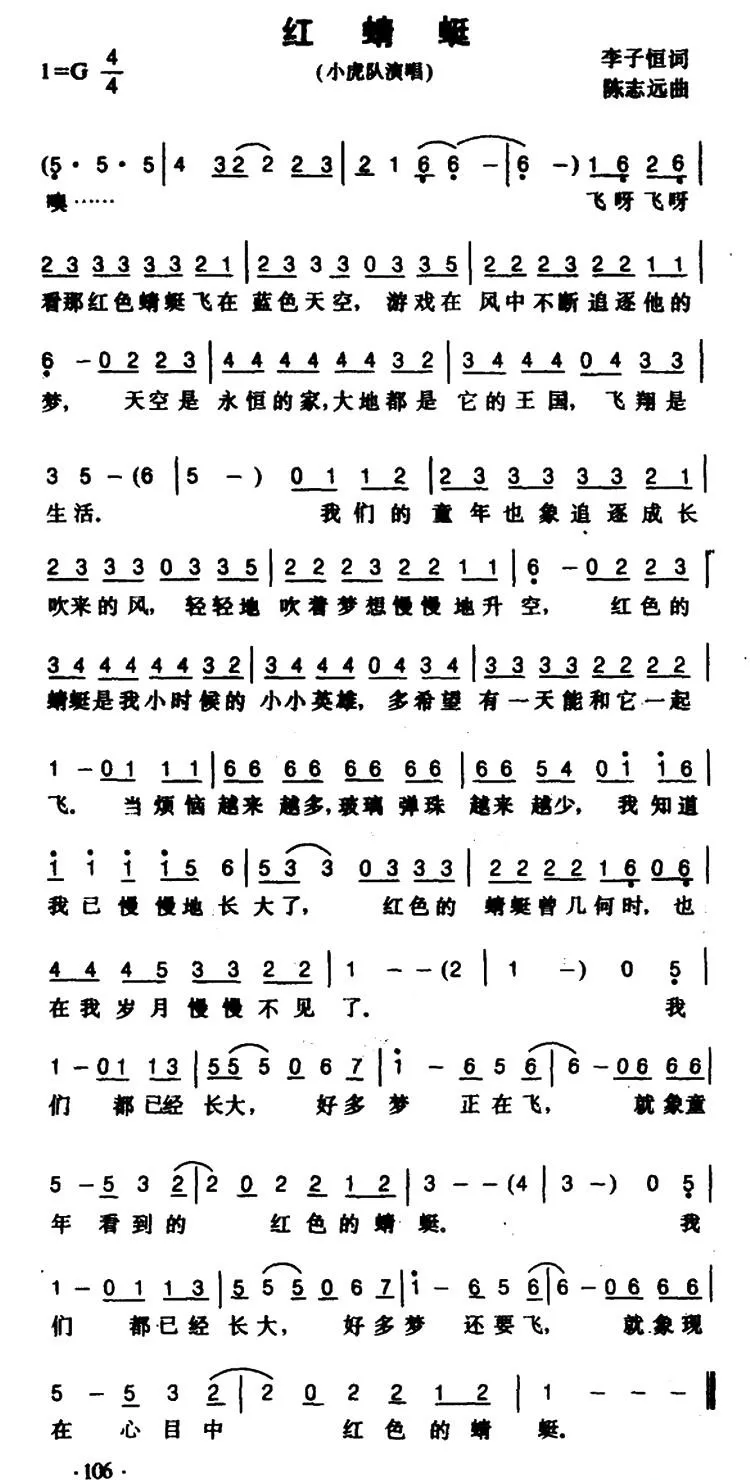 红 蜻 蜓
1=G 4/4
(小虎队演唱)
李子恒词
陈志远曲
(5· 5· 5 | 4 32 2 23 | 2 1 6 6 - | 6 -) 16 26 |
噢…… 飞呀飞呀
23 33 33 21 | 23 33 03 35 | 22 23 22 11 |
看那红色蜻蜓飞在 蓝色天空, 游戏在 风中不断追逐他的
6 - 02 23 | 44 44 44 32 | 34 44 04 33 |
梦, 天空是 永恒的家,大地都是 它的王国, 飞翔是
3 5 - (6 | 5 -) 01 12 | 23 33 33 21 |
生活. 我们的 童年也象追逐成长
23 33 03 35 | 22 23 22 11 | 6 - 02 23
吹来的风, 轻轻地 吹着梦想慢慢地升 空, 红色的
34 44 44 32 | 34 44 04 34 | 33 33 22 22
蜻蜓是我小时候的 小小英雄, 多希望 有一天能和它一起
1 - 01 11 | 66 66 66 66 | 66 54 01 16 |
飞. 当烦恼 越来 越多,玻璃 弹珠 越来 越少, 我知道
1 1 1 15 6 | 53 3 03 33 | 22 22 16 06 |
我已 慢慢地 长大了, 红色的 蜻蜓曾几何时, 也
44 45 33 22 | 1 - - (2 | 1 -) 0 5 |
在我 岁月 慢慢 不见 了. 我
1 - 01 13 | 55 5 06 7 | 1 - 6 5 6 | 6 - 06 66 |
们 都已经 长大, 好多梦 正在飞, 就象童
5 - 5 3 2 | 2 0 2 2 12 | 3 - - (4 | 3 -) 0 5 |
年 看到的 红色的蜻 蜓. 我
1 - 01 13 | 5 5 5 0 6 7 | 1 - 6 5 6 | 6 - 06 66 |
们 都已经 长大, 好多梦 还要飞, 就象现
5 - 5 3 2 | 2 0 2 2 12 | 1 - - - ‖
在 心目中 红色的蜻 蜓.
·106·